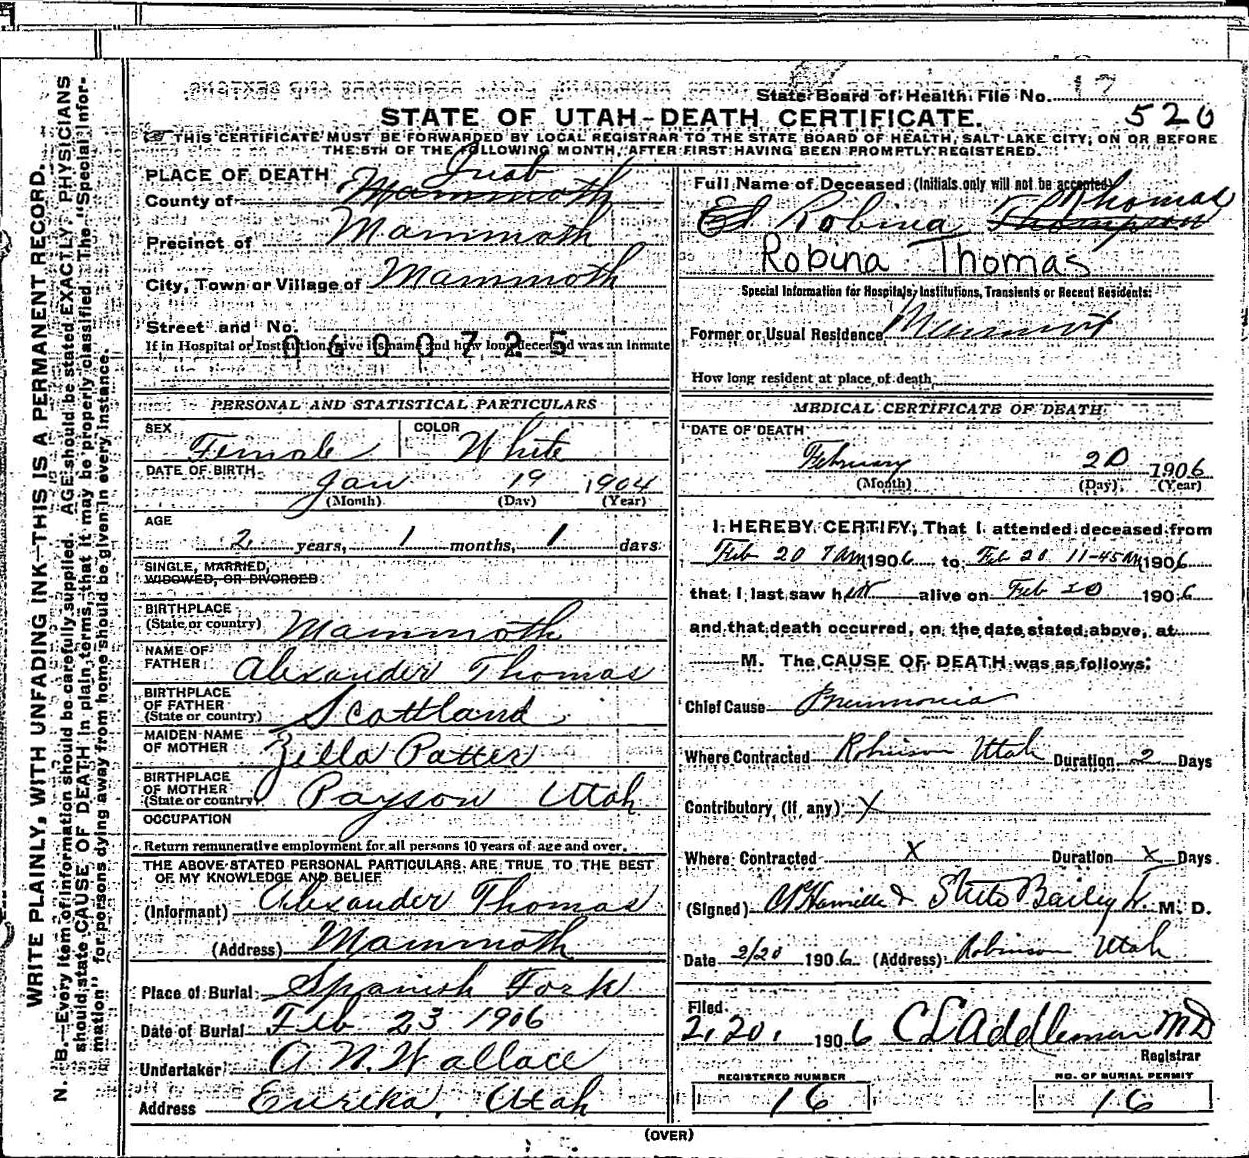 State Board of Health File No. 17
520
STATE OF UTAH—DEATH CERTIFICATE.
THIS CERTIFICATE MUST BE FORWARDED BY LOCAL REGISTRAR TO THE STATE BOARD OF HEALTH, SALT LAKE CITY, ON OR BEFORE
THE 5TH OF THE FOLLOWING MONTH, AFTER FIRST HAVING BEEN PROMPTLY REGISTERED.
WRITE PLAINLY, WITH UNFADING INK—THIS IS A PERMANENT RECORD.
N. B.—Every item of information should be carefully supplied. AGE should be stated EXACTLY. PHYSICIANS
should state CAUSE OF DEATH in plain terms, that it may be properly classified. The "Special Infor-
mation" for persons dying away from home should be given in every instance.
PLACE OF DEATH Juab
County of Mammoth
Precinct of Mammoth
City, Town or Village of Mammoth
Street and No.
If in Hospital or Institution, give its name and how long deceased was an inmate
0600725
PERSONAL AND STATISTICAL PARTICULARS
SEX Female COLOR White
DATE OF BIRTH Jan 19 1904
(Month) (Day) (Year)
AGE 2 years, 1 months, 1 days
SINGLE, MARRIED,
WIDOWED, OR DIVORCED
BIRTHPLACE
(State or country) Mammoth
NAME OF
FATHER Alexander Thomas
BIRTHPLACE
OF FATHER
(State or country) Scottland
MAIDEN NAME
OF MOTHER Zella Patter
BIRTHPLACE
OF MOTHER
(State or country) Payson Utah
OCCUPATION
Return remunerative employment for all persons 10 years of age and over.
THE ABOVE STATED PERSONAL PARTICULARS ARE TRUE TO THE BEST
OF MY KNOWLEDGE AND BELIEF
(Informant) Alexander Thomas
(Address) Mammoth
Place of Burial Spanish Fork
Date of Burial Feb 23 1906
Undertaker A. N. Wallace
Address Eureka, Utah
Full Name of Deceased (Initials only will not be accepted)
Robina Thompson Thomas
Robina Thomas
Special Information for Hospitals, Institutions, Transients or Recent Residents:
Former or Usual Residence Mammoth
How long resident at place of death
MEDICAL CERTIFICATE OF DEATH
DATE OF DEATH
February 20 1906
(Month) (Day) (Year)
I HEREBY CERTIFY, That I attended deceased from
Feb 20 7 am 1906 to Feb 20 11-45 am 1906
that I last saw her alive on Feb 20 1906
and that death occurred, on the date stated above, at
M. The CAUSE OF DEATH was as follows:
Chief Cause Pneumonia
Where Contracted Robinson Utah Duration 2 Days
Contributory (if any) X
Where Contracted X Duration X Days.
(Signed) & Bailey M. D.
Date 2/20 1906 (Address) Robinson Utah
Filed
2,20, 1906 C L Addleman MD
Registrar
REGISTERED NUMBER
16
NO. OF BURIAL PERMIT
16
(OVER)